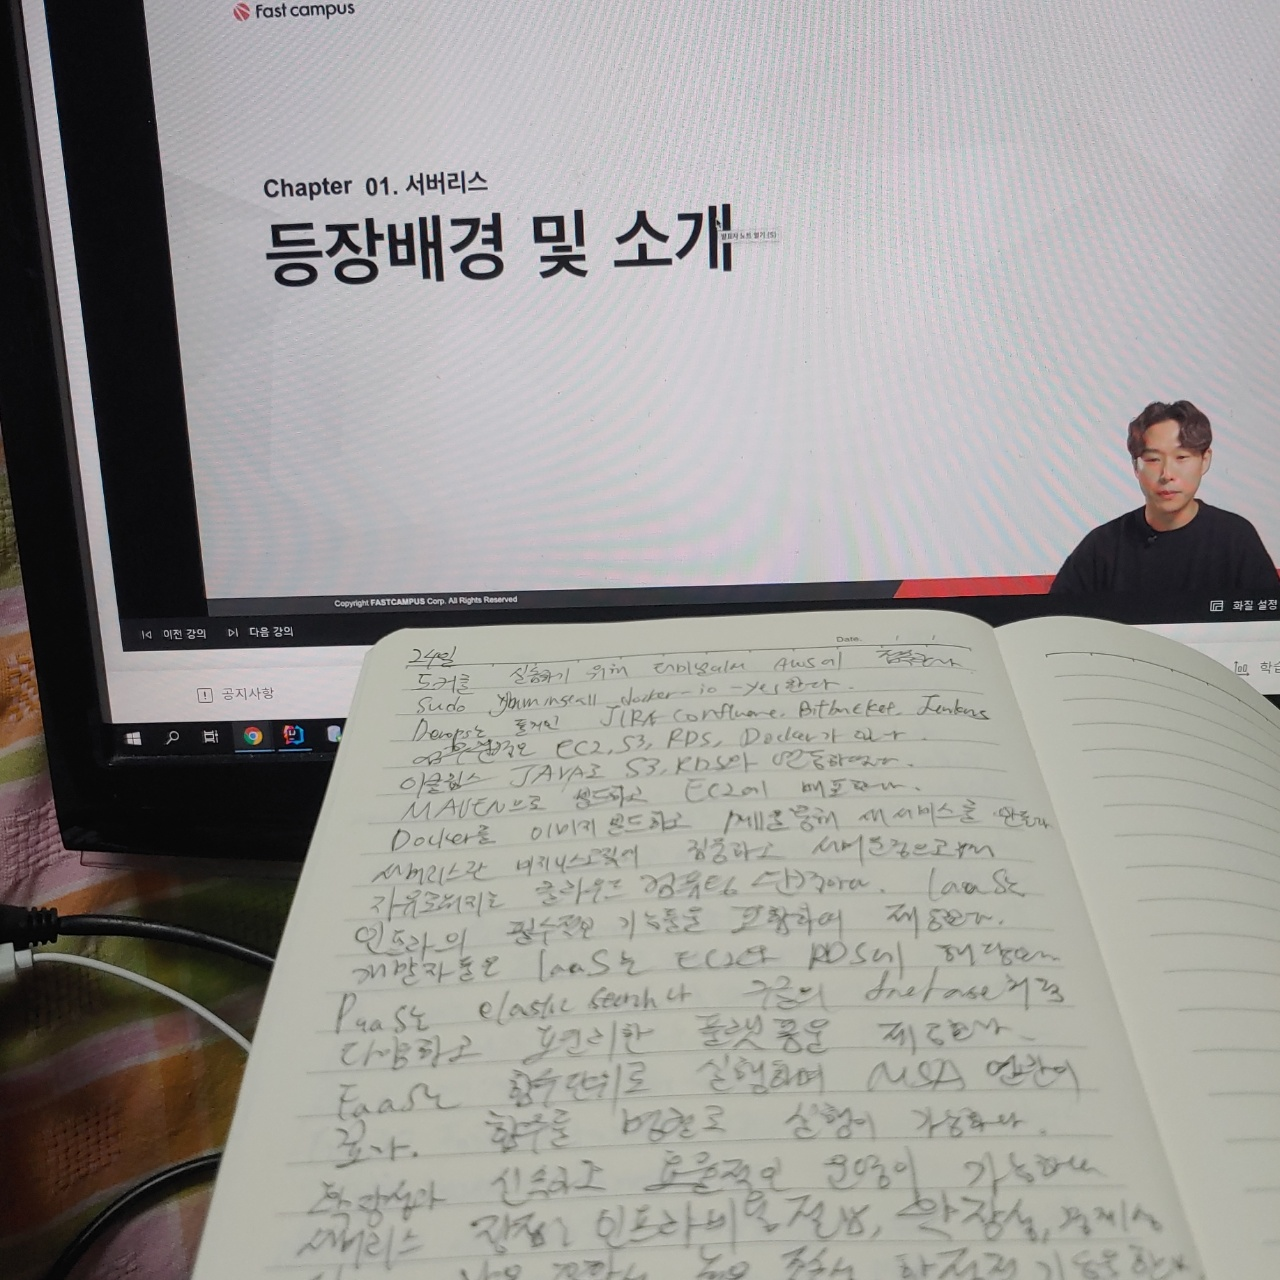 Fast campus
Chapter 01. 서버리스
등장배경 및 소개
발표자 노트 열기 (S)
Copyright FASTCAMPUS Corp. All Rights Reserved
이전 강의 다음 강의
화질 설정
공지사항
학습
Date.
24일
도커를 실습하기 위해 터미널에서 AWS에 접속한다
Sudo yum install docker-io -yes한다.
Devops는 JIRA Confluence, Bitbucket, Jenkins
EC2, S3, RDS, Docker가 있다.
이클립스 JAVA로 S3, RDS와 연동하였다.
MAVEN으로 빌드하고 EC2에 배포한다.
Docker를 이미지 빌드하고 통해 새 서비스를 만든다
서버리스란 비지니스로직에 집중하고 서버운영으로부터
자유로워지는 클라우드 컴퓨팅 IaaS는
인프라의 필수적인 기능들을 포함하여 제공한다.
개발자들은 IaaS는 EC2와 RDS에 해당한다
PaaS는 elastic search나 구글의 firebase처럼
다양하고 편리한 플랫폼을 제공한다.
FaaS는 함수단위로 실행하며 MSA 연관이
깊다. 함수를 병렬로 실행이 가능하다.
확장성과 신속하고 효율적인 운영이 가능하다
서버리스 장점: 인프라비용절감, 확장성,